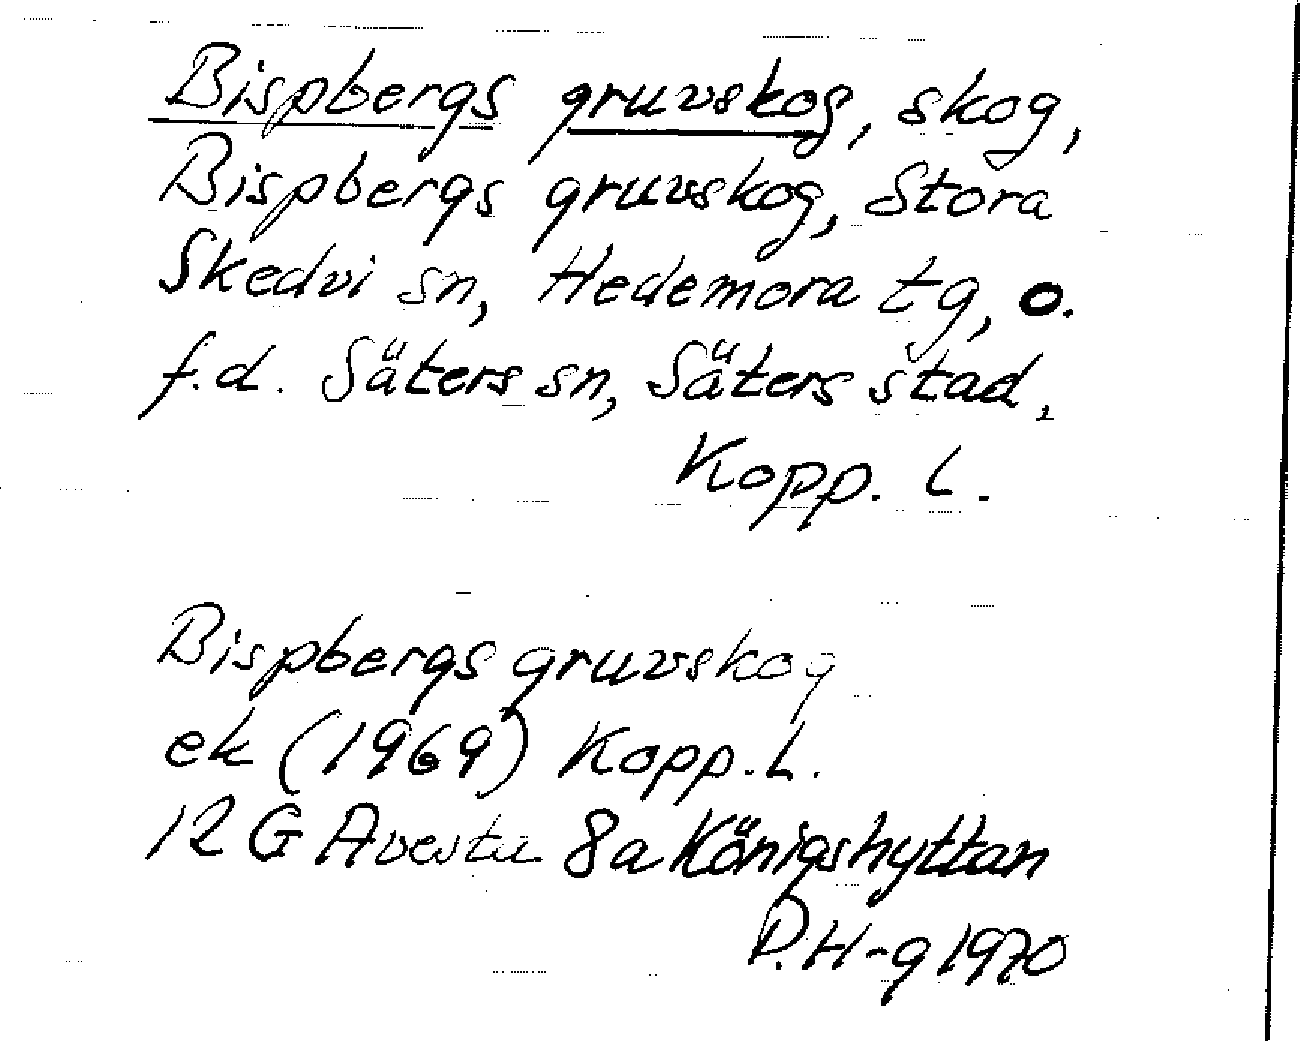 Bispbergs gruvskog, skog,
Bispbergs gruvskog, Stora
Skedvi sn, Hedemora tg, o.
f.d. Säters sn, Säters stad,
Kopp. L.
Bispbergs gruvskog
ek (1969) Kopp. L.
12 G Avesta 8a Königshyttan
P.H-g 1970